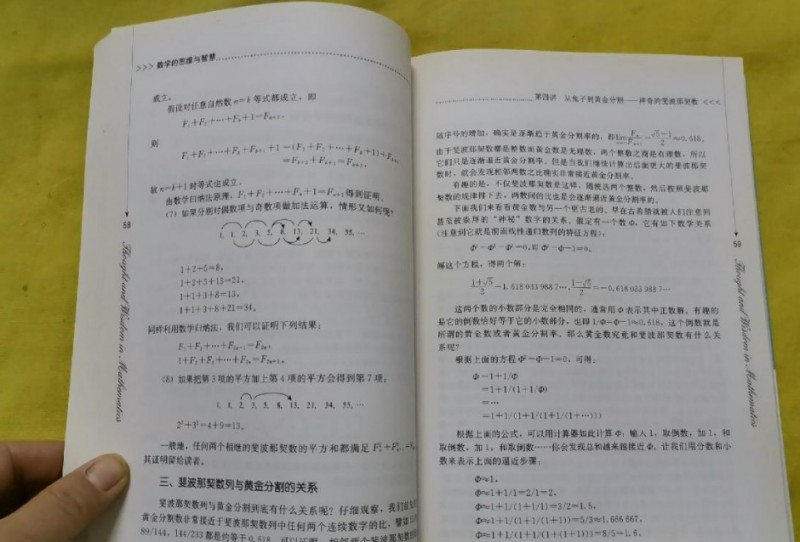 >>> 数学的思维与智慧
成立。
假设对任意自然数n=k等式都成立，即
F₁+F₂+…+Fₖ+1=Fₖ₊₂，
则
F₁+F₂+…+Fₖ+Fₖ₊₁+1=(F₁+F₂+…+Fₖ+1)+Fₖ₊₁
=Fₖ₊₂+Fₖ₊₁=Fₖ₊₃，
故n=k+1时等式也成立。
由数学归纳法原理，F₁+F₂+…+Fₙ+1=Fₙ₊₂得到证明。
(7) 如果分别对偶数项与奇数项做如法运算，情形又如何呢?
1, 1, 2, 3, 5, 8, 13, 21, 34, 55, …
1+2+5=8,
1+2+5+13=21,
1+1+3+8=13,
1+1+3+8+21=34。
同样利用数学归纳法，我们可以证明下列结果：
(8) 如果把第3项的平方加上第4项的平方会得到第7项：
1, 1, 2, 3, 5, 8, 13, 21, 34, 55, …
2²+3²=4+9=13。
一般地，任何两个相继的斐波那契数的平方和都满足
其证明留给读者。
三、斐波那契数列与黄金分割的关系
斐波那契数列与黄金分割到底有什么关系呢? 仔细观察，我们
黄金分割数非常接近于斐波那契数列中任何两个连续数字的比，譬如
89/144, 144/233 都是约等于0.618
58
Thought and Wisdom in Mathematics
第四讲 从兔子到黄金分割——神奇的斐波那契数 <<<
随序号的增加，确实是逐渐趋于黄金分割率的，即
由于斐波那契数都是整数而黄金数是无理数，两个整数之商是有理数，所以
它们只是逐渐逼近黄金分割率。但是当我们继续计算出后面更大的斐波那契
数时，就会发现相邻两数之比确实非常接近黄金分割率。
有趣的是，不仅斐波那契数是这样，随便选两个整数，然后按照斐波那
契数的规律排下去，两数间的比也是会逐渐逼近黄金分割率的。
下面我们来看看黄金数与另一个更古老的、早在古希腊就被人们注意到
甚至被崇拜的“神秘”数字的关系。假定有一个数Φ，它有如下数学关系
(注意到它就是前面线性递归数列的特征方程)：
Φ²−Φ¹−Φ⁰=0,即Φ²−Φ−1=0。
解这个方程，得两个解：
(1+√5)/2=1.618 033 988 7…, (1−√5)/2=−0.618 033 988 7…
这两个数的小数部分是完全相同的，通常用Φ表示其中正数解。有趣的
是它的倒数恰好等于它的小数部分，也即1/Φ=Φ−1≈0.618，这个倒数就是
所谓的黄金数或者黄金分割率。那么黄金数究竟和斐波那契数有什么关
系呢?
根据上面的方程Φ²−Φ−1=0，可得，
Φ=1+1/Φ
=1+1/(1+1/Φ)
=…
=1+1/(1+1/(1+1/(1+…)))
根据上面的公式，可以用计算器如此计算Φ：输入1，取倒数，加1，和
取倒数，加1，和取倒数……你会发现总和越来越接近Φ。让我们用分数和小
数来表示上面的逼近步骤：
Φ≈1,
Φ≈1+1/1=2/1=2,
Φ≈1+1/(1+1)=3/2=1.5,
Φ≈1+1/(1+1/(1+1))=5/3=1.666 667,
Φ≈1+1/(1+1/(1+1/(1+1)))=8/5=1.6,
59
Thought and Wisdom in Mathematics